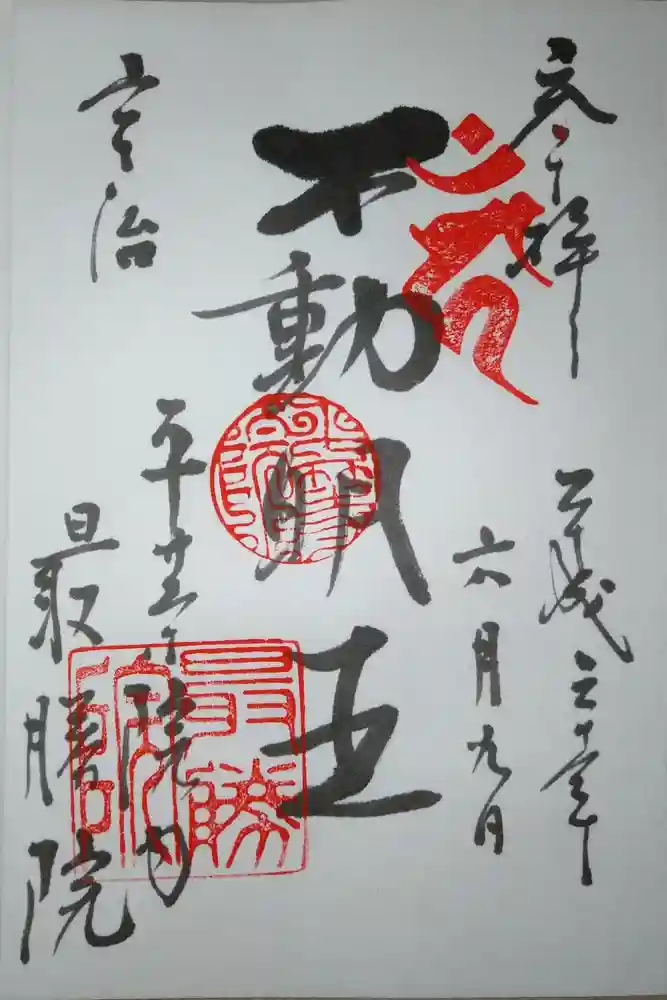 奉拝
平成三十年
六月九日
不動明王
宇治
平等院内
最勝院
最勝院